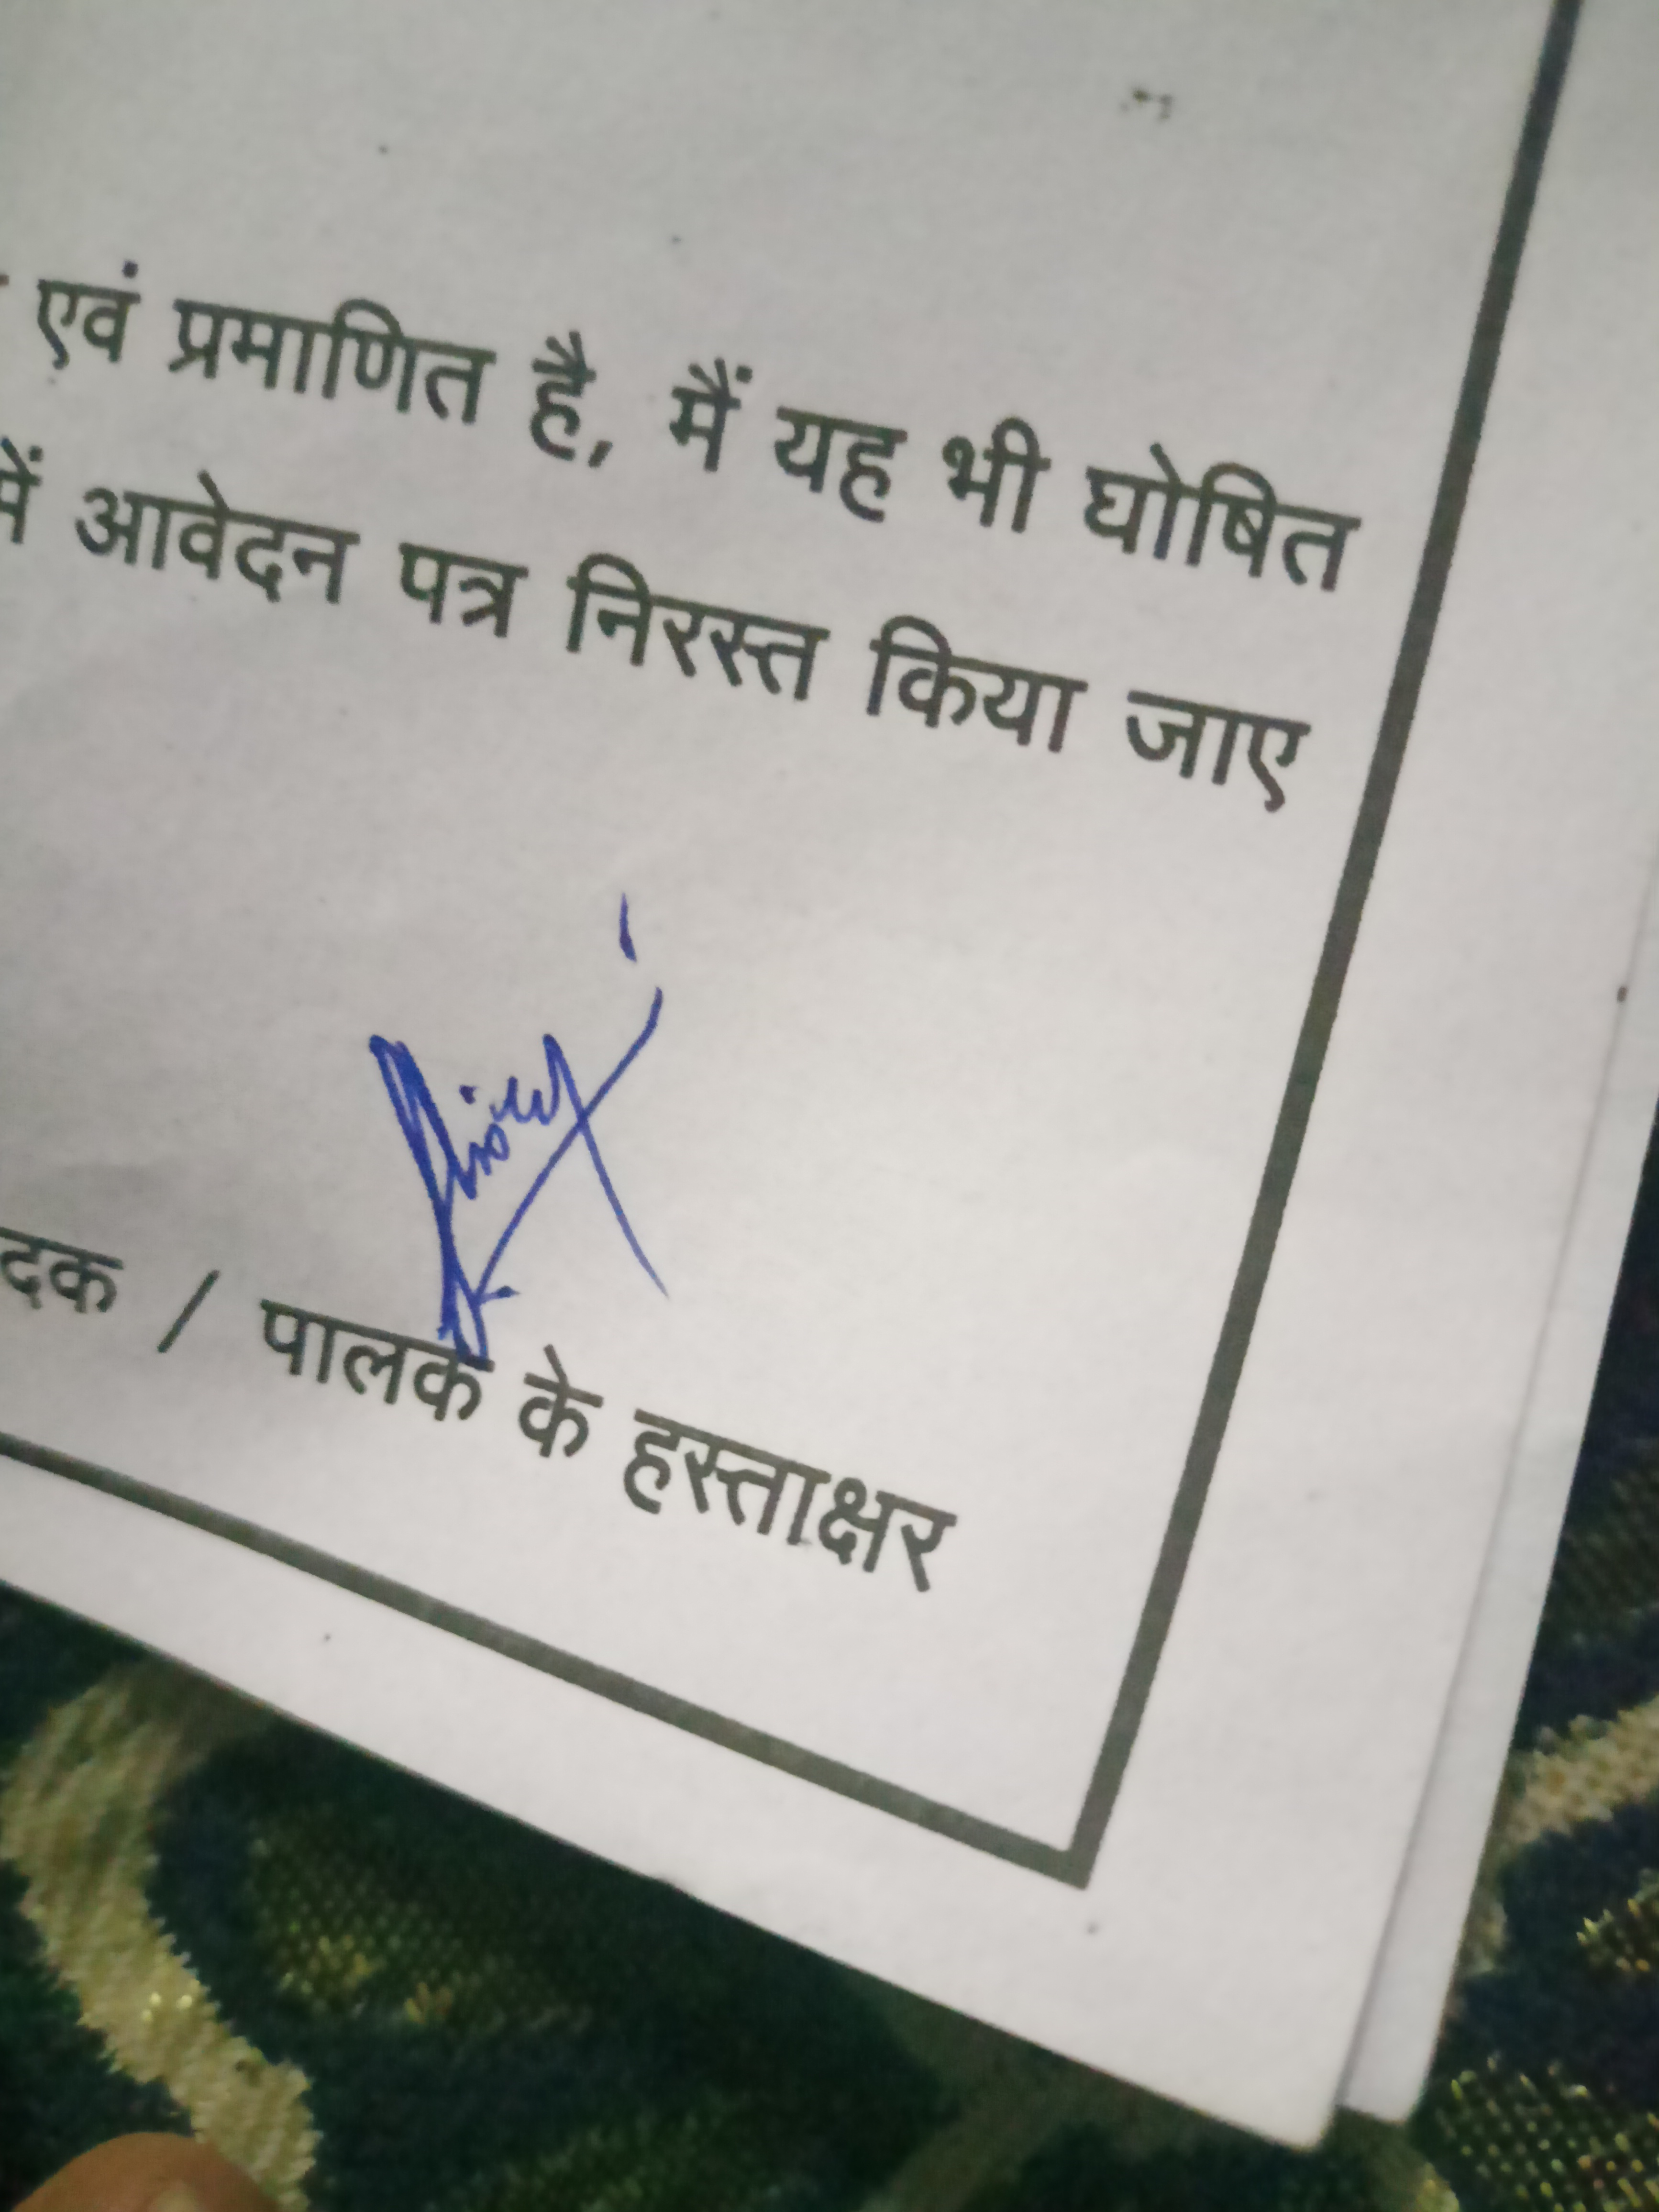 एवं प्रमाणित है, मैं यह भी घोषित
में आवेदन पत्र निरस्त किया जाए
दक / पालक के हस्ताक्षर